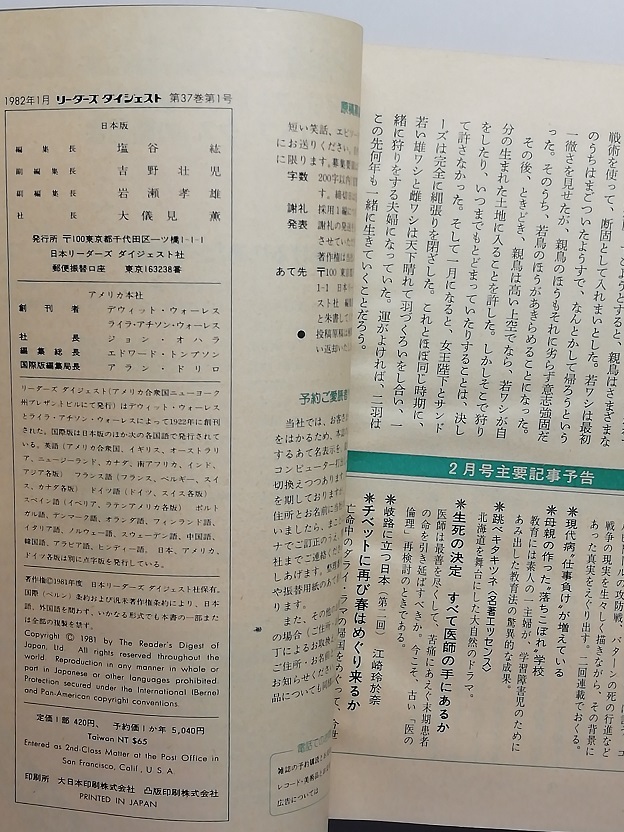 1982年1月 リーダーズ ダイジェスト 第37巻第1号
日本版
編集長 塩谷紘
副編集長 吉野壮児
副編集長 岩瀬孝雄
社長 大儀見薫
発行所 〒100東京都千代田区一ツ橋1-1-1
日本リーダーズ ダイジェスト社
郵便振替口座 東京163238番
アメリカ本社
創刊者 デウィット・ウォーレス
ライラ・アチソン・ウォーレス
社長 ジョン・オハラ
編集総長 エドワード・トンプソン
国際版編集局長 アラン・ドリロ
リーダーズ ダイジェスト(アメリカ合衆国ニューヨーク
州プレザントビルにて発行)はデウィット・ウォーレス
とライラ・アチソン・ウォーレスによって1922年に創刊
された。国際版は日本版のほか次の各国語で発行されて
いる。英語(アメリカ合衆国、イギリス、オーストラリ
ア、ニュージーランド、カナダ、南アフリカ、インド、
アジア各版) フランス語(フランス、ベルギー、スイ
ス、カナダ各版) ドイツ語(ドイツ、スイス各版)
スペイン語(イベリア、ラテンアメリカ各版) ポルト
ガル語、デンマーク語、オランダ語、フィンランド語、
イタリア語、ノルウェー語、スウェーデン語、中国語、
韓国語、アラビア語、ヒンディー語、 日本、アメリカ、
ドイツ各版は別に点字版を発行している。
著作権©1981年度 日本リーダーズ ダイジェスト社保有。
国際(ベルン)条約および汎米著作権条約により、日本
語、外国語を問わず、いかなる形式でも本書の一部また
は全部の複製を禁ず。
Copyright © 1981 by The Reader's Digest of
Japan, Ltd. All rights reserved throughout the
world. Reproduction in any manner in whole or
part in Japanese or other languages prohibited.
Protection secured under the International (Berne)
and Pan-American copyright conventions.
定価1部 420円、 予約価1か年 5,040円
Taiwan NT $65
Entered as 2nd Class Matter at the Post Office in
San Francisco, Calif., U.S.A.
印刷所 大日本印刷株式会社 凸版印刷株式会社
PRINTED IN JAPAN
短い笑話、エピ
にお送りください。
に限ります。
字数 200字以内
謝礼 採用1編に
発表 謝礼の発送
させていた
著作権は
あて先 〒100 東京
1-1 日本リ
スト社 編集
と朱書して
● 投稿原稿は
い返却いた
予約ご愛読者
当社では、お客さ
をはかるため、本誌
するあて名表示を、
コンピューター打
切換えつつあります
を期しておりますが
住所とお名前に
いましたら、まこ
ナでご訂正のうえ
社までご連絡くだ
しあげます。
や振替用紙のあて
ります。
また、その他
の場合(ご住所
丁によるお取換
ご住所・お名前
お知らせください
品についても同様
電話での
雑誌の予約購読と
レコード・美術品と
広告については
戦術を使って、断固として入れまいとした。若ワシは最初
のうちはまごついたようすで、なんとかして帰ろうという
一徹さを見せたが、親鳥のほうもそれに劣らず意志強固だ
った。そのうち、若鳥のほうがあきらめることになった。
その後、ときどき、親鳥は高い上空でなら、若ワシが自
分の生まれた土地に入ることを許した。しかしそこで狩り
をしたり、いつまでもとどまっていたりすることは、決し
て許さなかった。そして一月になると、女王陛下とサンド
ーズは完全に縄張りを閉ざした。これとほぼ同じ時期に、
若い雄ワシと雌ワシは天下晴れて羽づくろいをし合い、一
緒に狩りをする夫婦になっていた。運がよければ、二羽は
この先何年も一緒に生きていくことだろう。
2月号主要記事予告
戦争の現実を生々しく描きながら、その背景に
あった真実をえぐり出す。二回連載でおくる。
＊現代病“仕事負け”が増えている
＊母親の作った“落ちこぼれ”学校
教育には素人の一主婦が、学習障害児のために
あみ出した教育法の驚異的な成果。
＊跳べキタキツネ〈名著エッセンス〉
北海道を舞台にした大自然のドラマ。
＊生死の決定 すべて医師の手にあるか
医師は最善を尽くして、苦痛にあえぐ末期患者
の命を引き延ばすべきか。今こそ、古い「医の
倫理」再検討のときである。
＊岐路に立つ日本(第二回) 江崎玲於奈
＊チベットに再び春はめぐり来るか
亡命中のダライ・ラマの帰国をめぐって、今世